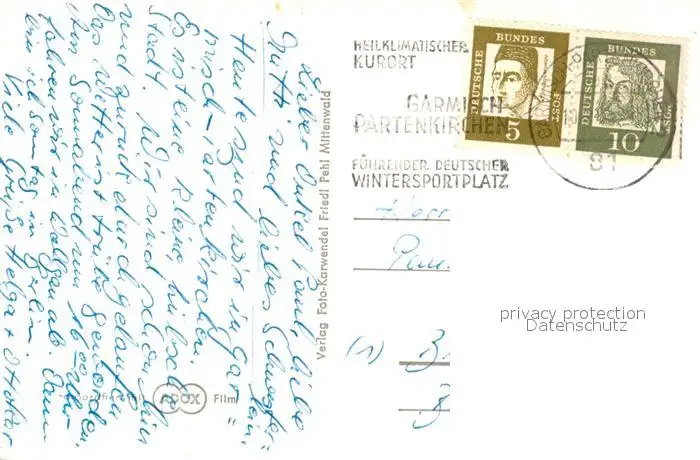 Lieber Onkel Paul, liebe
Jutta und liebes Schwester
lein,
Heute sind wir in Gar-
misch-Partenkirchen.
Es ist eine kleine hübsche
Stadt. Wir sind schon hin
und zurück durchgelaufen
Das Wetter ist trübe geworden.
Am Sonnabend um 16 Uhr
fahren wir in ab. Dann
bin ich Sonntag in Berlin.
Viele Grüße Helga +
Verlag Foto-Karwendel Friedl Pehl Mittenwald
ADOX Film
HEILKLIMATISCHER
KURORT
GARMISCH-
PARTENKIRCHEN
FÜHRENDER DEUTSCHER
WINTERSPORTPLATZ
DEUTSCHE BUNDES POST
5
DEUTSCHE BUNDES POST
10
81
Herr
Pau
(1) B
B
privacy protection
Datenschutz